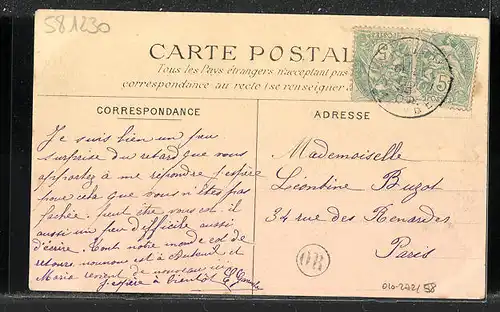 581230
CARTE POSTAL
Tous les Pays étrangers n'acceptant pas
correspondance au recto (se renseigner à
CORRESPONDANCE
ADRESSE
Je suis bien un peu
surprise du retard que vous
apportez à me répondre j'espère
pour cela que vous n'êtes pas
fâchée. Peut être vous est il
aussi un peu difficile aussi
d'écrire. Tout notre monde est de
retour nounou est à Auteuil et
Maria revient de nouveau
j'espère à bientôt
Mademoiselle
Léontine Buzot
34 rue des Renardes
Paris
OR
5
010-272/58